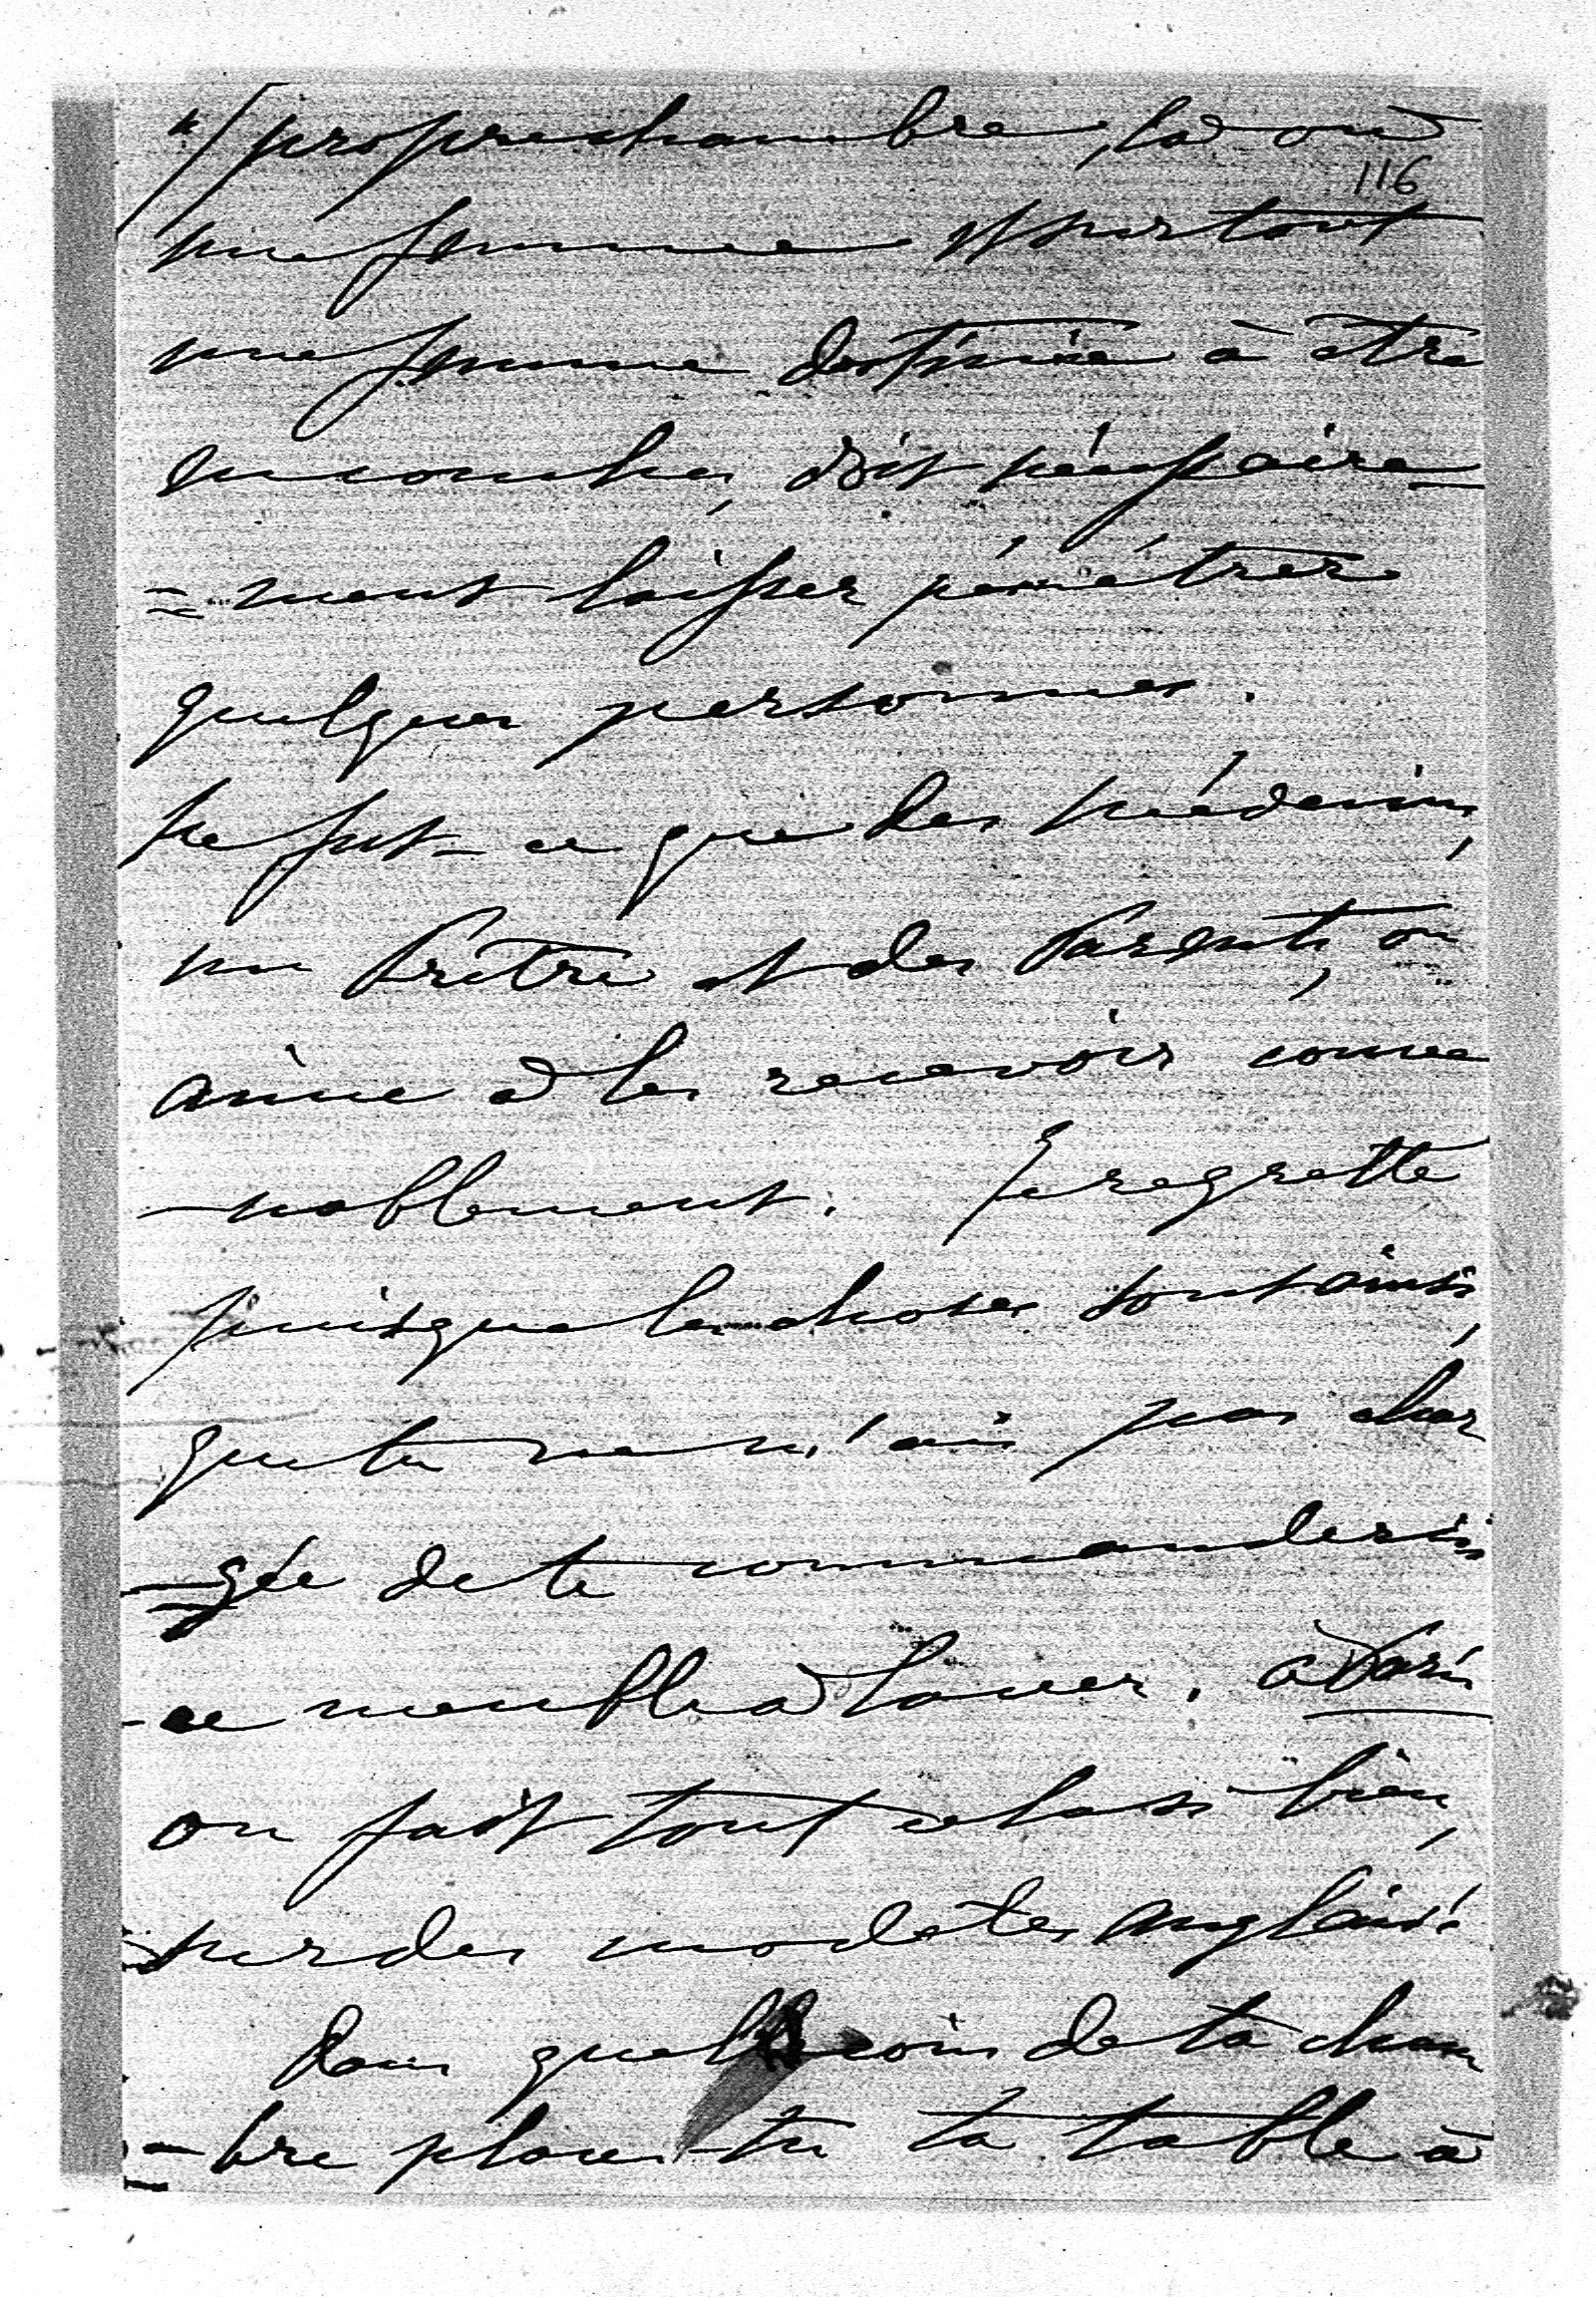 4/ propre chambre, là où
116
une femme et surtout
une femme destinée à être
en couches, doit nécessaire
=ment laisser pénétrer
quelques personnes.
Ne fut-ce que des médecins,
un Prêtre et des Parents, on
aime à les recevoir conve
-nablement. Je regrette
puisque les choses sont ainsi,
que tu ne m'aies pas char
=gée de te commander ici
ce meuble à laver. à Paris
on fait tout cela si bien,
sur des modèles anglais.
Dans quel coin de ta cham
-bre places-tu ta table à